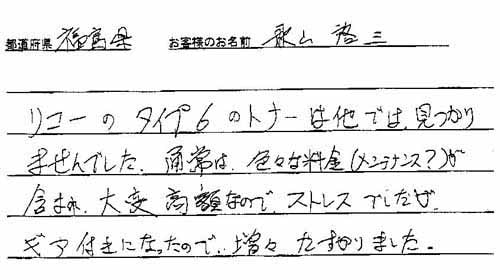 都道府県 福島県 お客様のお名前 秋山 啓三
リコーの タイプ6 のトナーは他では、見つかり
ませんでした。通常は、色々な料金(メンテナンス?)が
含まれ、大変 高額なので、ストレス でしたが、
ギア付きになったので、増々 たすかりました。